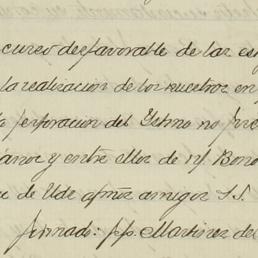 curso desfavorable de las es
la realizacion de los nuestros en
perforacion del Istmo no
años y entre ellos de n/ Bono
de Uds afmos amigos S.S.
firmado: pp. Martinez de